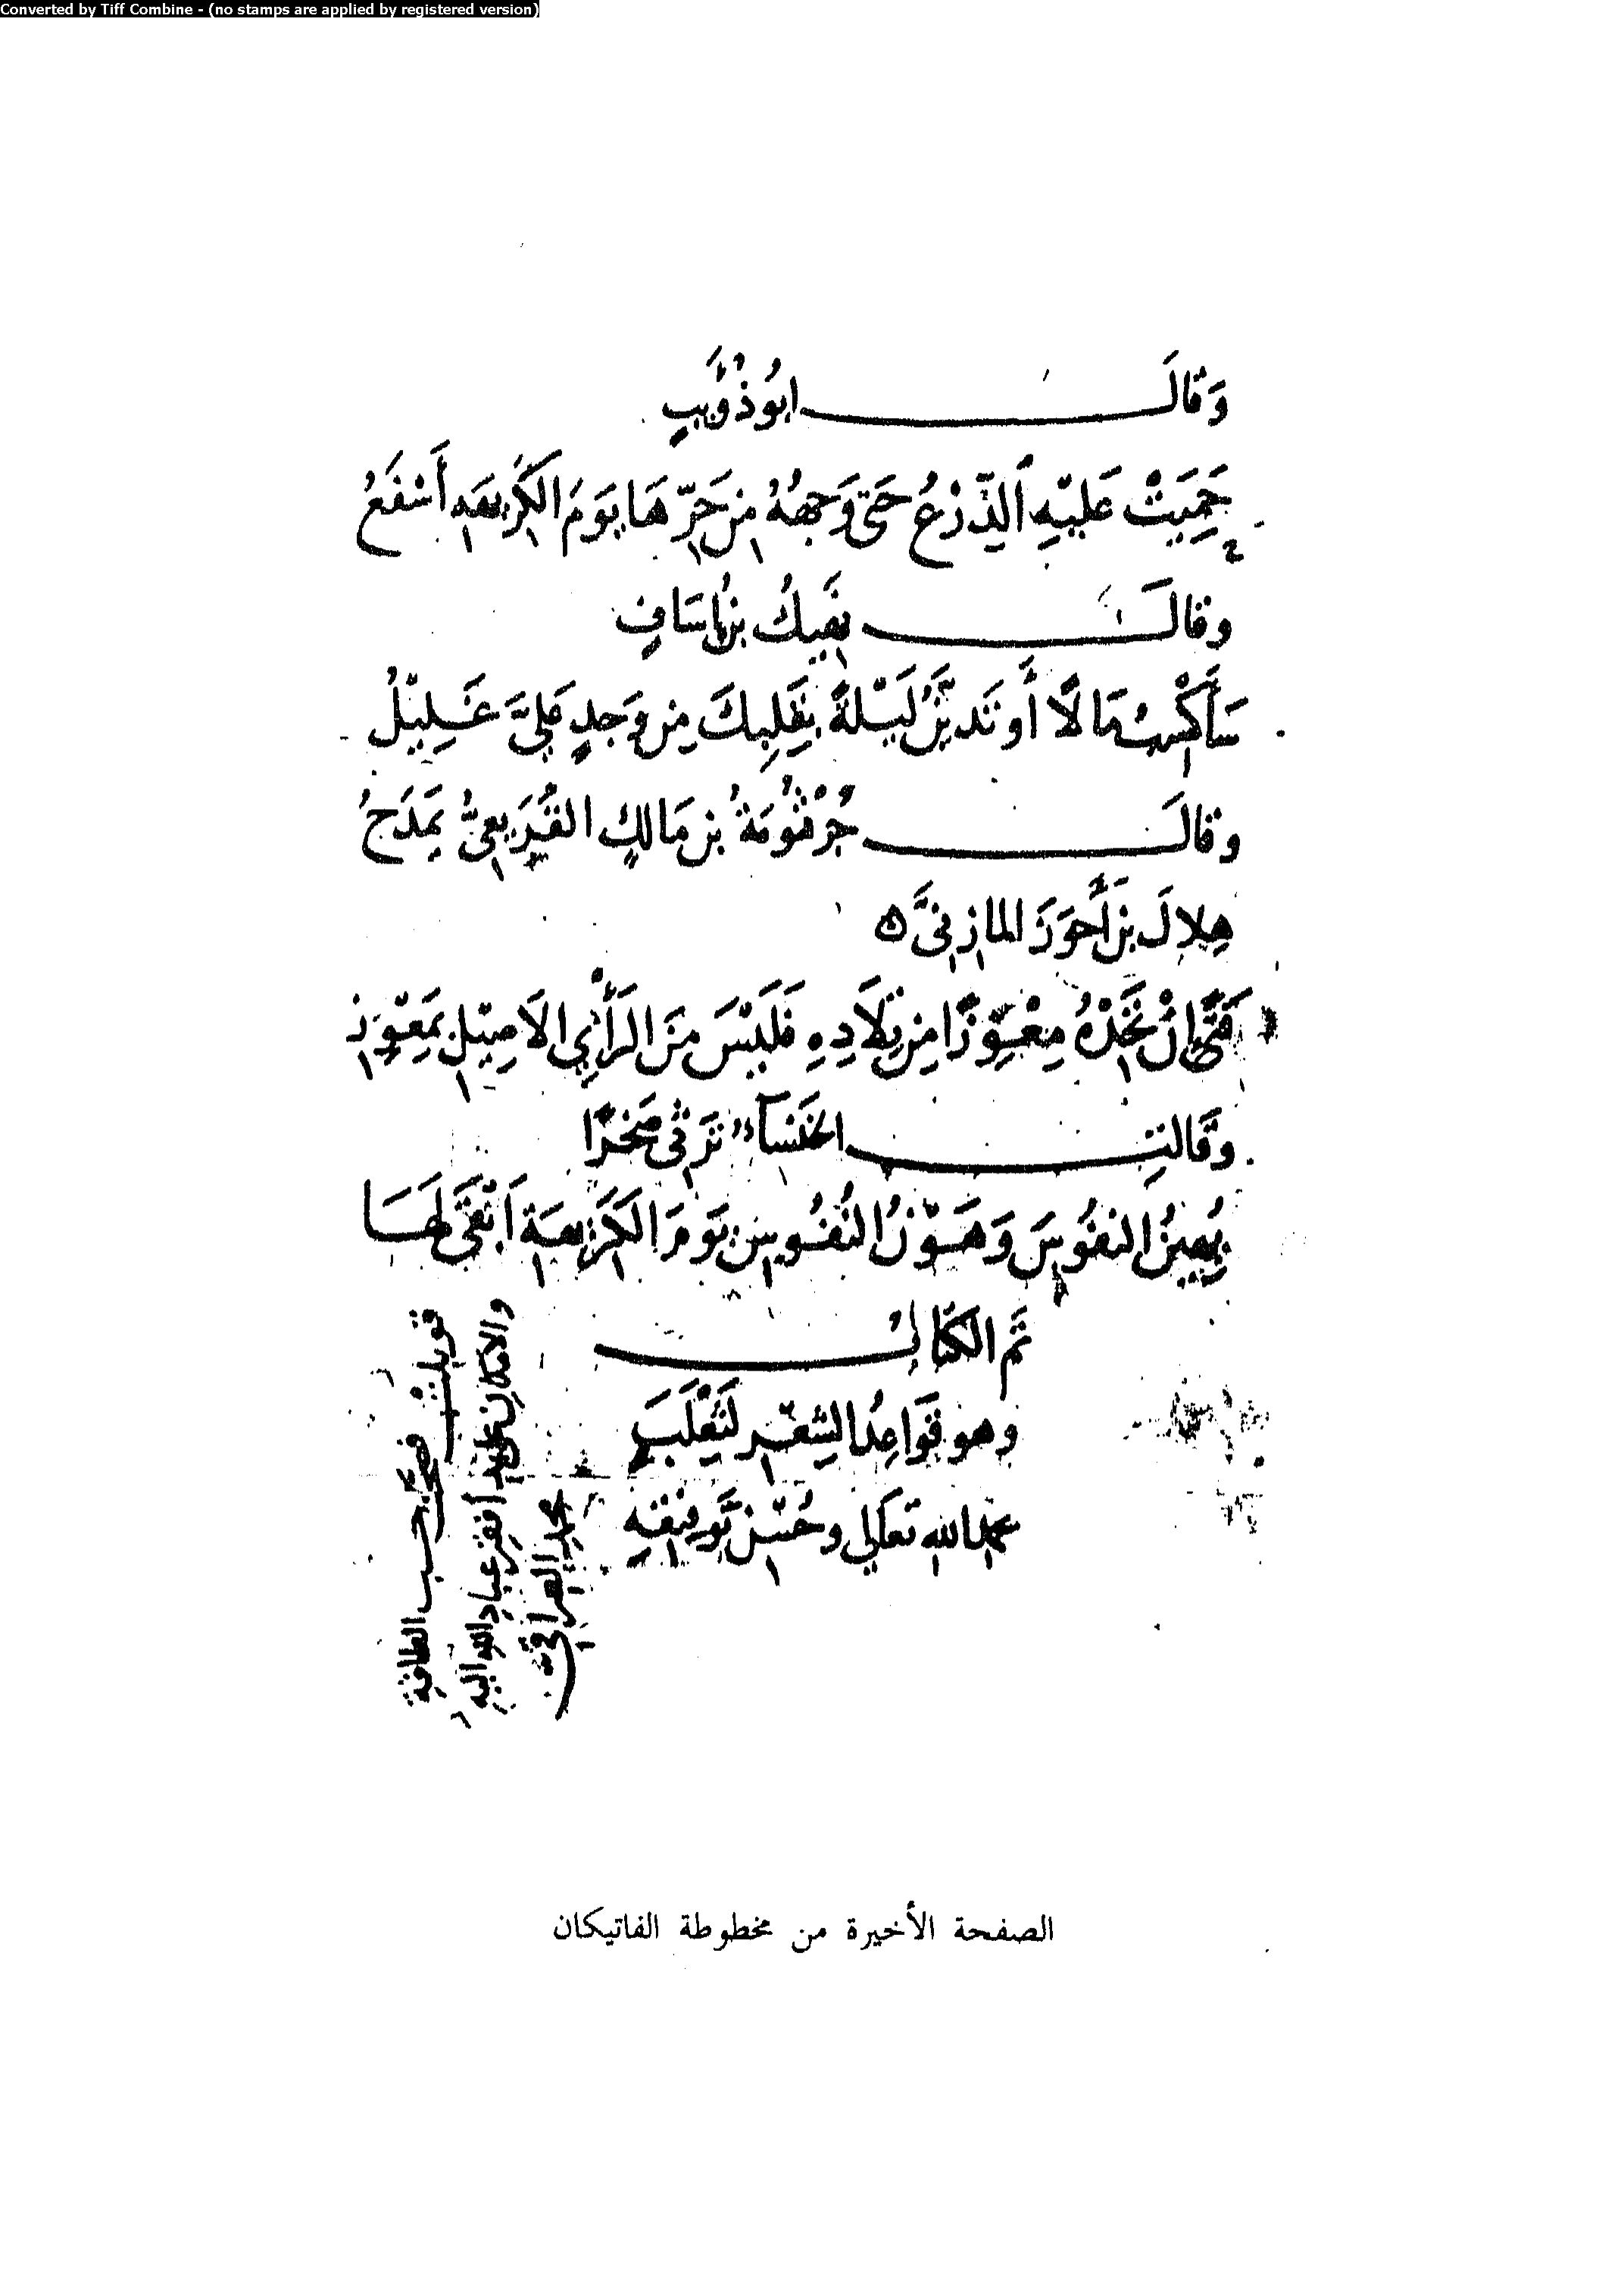 Converted by Tiff Combine - (no stamps are applied by registered version)
وَقالَ ابُو ذُؤَيبٍ
حَمِيَتْ عَليْهِ الدِّرْعُ حَتى وَجهُهُ مِن حَرِّهَا يَومَ الكَرِيهَةِ أَسْفَعُ
وقالَ نَهِيكُ بنُ اسَافٍ
سَأَكْسِبُ مَالاً أَو تَبيتَنَّ لَيْلةً بِقَلبِكَ مِن وَجدٍ عَلىَّ غَلِيْلُ
وقالَ جُرْثُومَةُ بن مَالكٍ القُرَيعِىُّ يَمدَحُ
هِلالَ بنَ أَحوَزَ المازِنِىَّ ه
فَتًى إنْ تَجِدْهُ مُعْوِزًا مِن تِلاَدِهِ فَلَيْسَ مِنَ الرَّأْيِ الاَصِيْلِ بِمُعْوِزِ
وَقَالتِ الخَنساءُ تَرثى صَخرًا
يُهِينُ النفُوسَ وَهَوْنُ النُّفُوسِ يَومَ الكَرِيهَةِ اَبْقَى لَهَا
تَم الكتَابُ
وهو قَوَاعِدُ الشِعْرِ لثَعْلَبَ
بحمد الله تعَالى وحُسْنِ تَوفيْقهِ
قوبلت فصحّ حسب الطاقة
والامكان على يد أفقر عباد الله اليه
الصفحة الأخيرة من مخطوطة الفاتيكان